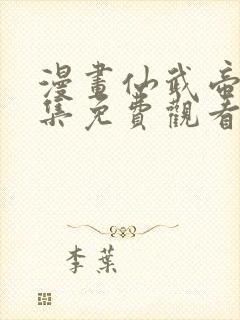 漫畫仙武帝
集免費觀看
李葉